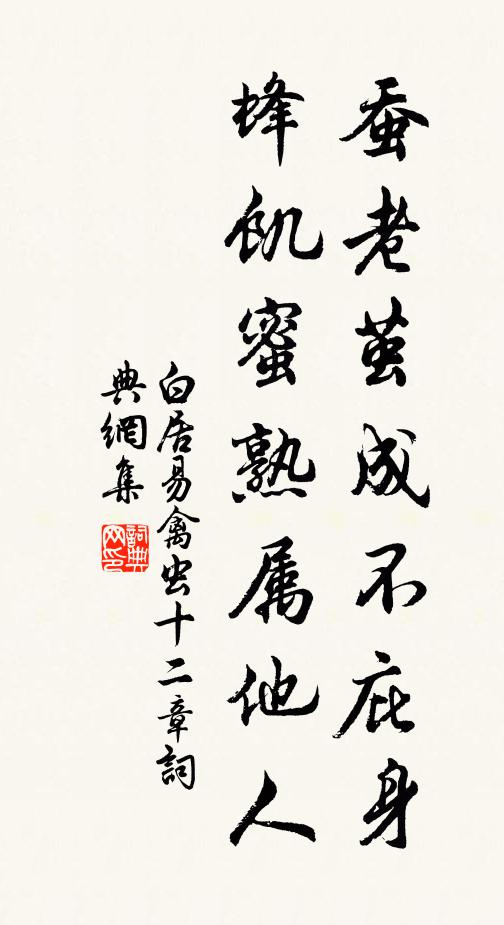 蚕老茧成不庇身
蜂饥蜜熟属他人
白居易禽虫十二章詞
典網集
詞典
网印